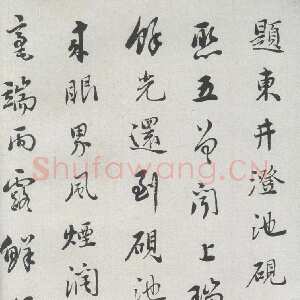 題東井澄池硯
聚五曾聞上瑞
餘光還到硯池
來眼界風煙潤
毫端雨露鮮
Shufawang.CN